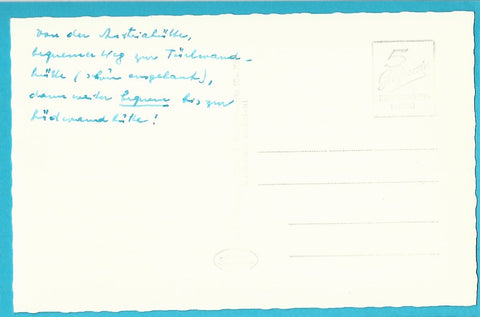 Von der Austriahütte,
bequemer Weg zur Türlwand-
hütte (schön angelegt),
dann weiter bequem bis zur
Südwandhütte!
5